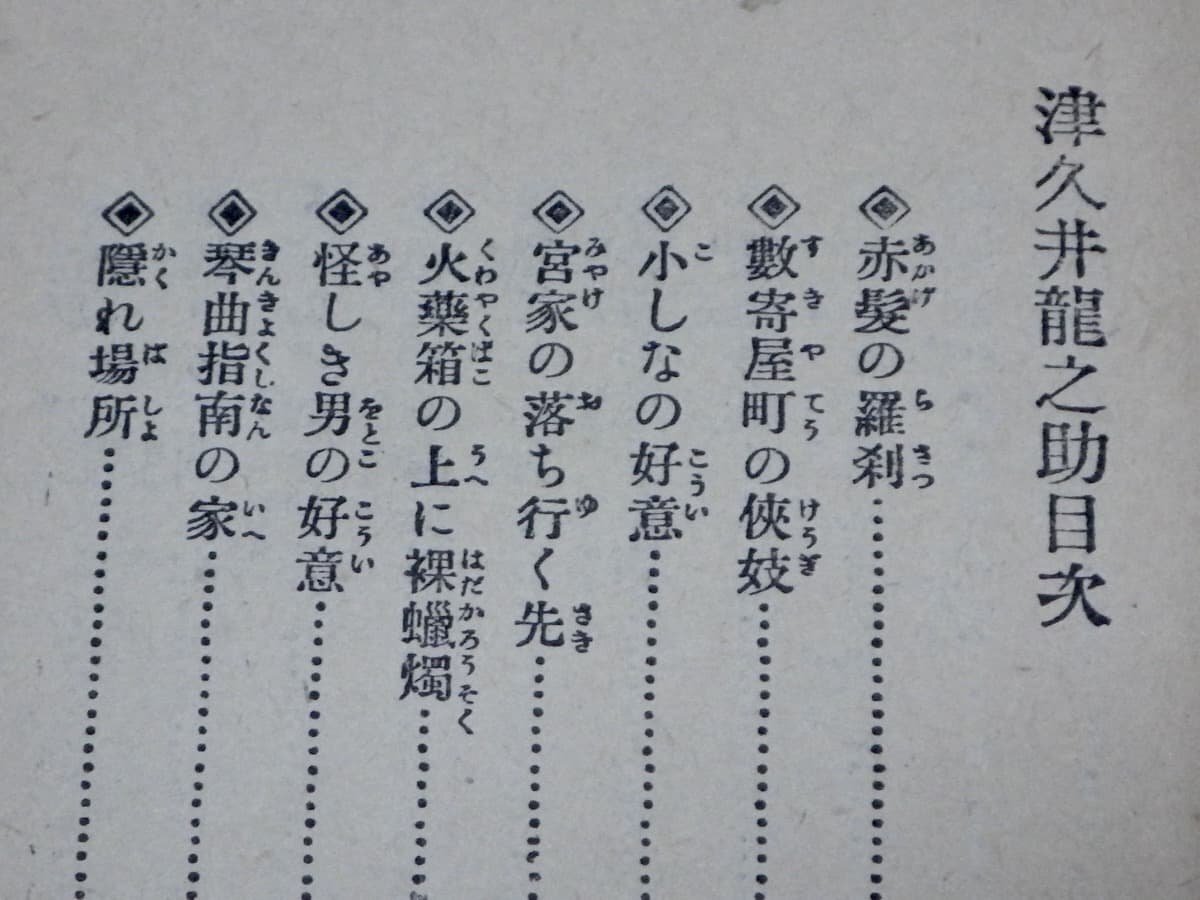 津久井龍之助目次
赤髮の羅刹
數寄屋町の俠妓
小しなの好意
宮家の落ち行く先
火藥箱の上に裸蠟燭
怪しき男の好意
琴曲指南の家
隱れ場所